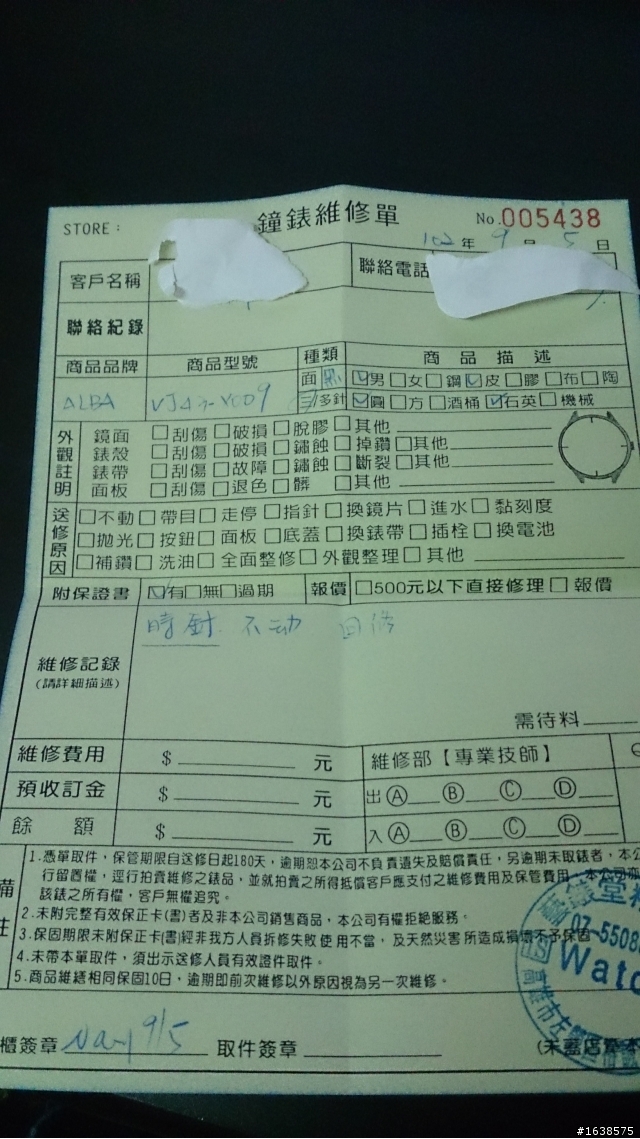 STORE： 鐘錶維修單 No.005438
102年 9月 5日
客戶名稱 聯絡電話
聯絡紀錄
商品品牌 商品型號 種類 商品描述
面 ☑男□女□鋼☑皮□膠□布□陶
ALBA VJ42-X009 多針 ☑圓□方□酒桶☑石英□機械
外觀註明
鏡面 □刮傷 □破損 □脫膠 □其他
錶殼 □刮傷 □破損 □鏽蝕 □掉鑽 □其他
錶帶 □刮傷 □故障 □鏽蝕 □斷裂 □其他
面板 □刮傷 □退色 □髒 □其他
送修原因
□不動 □帶目 □走停 □指針 □換鏡片 □進水 □黏刻度
□拋光 □按鈕 □面板 □底蓋 □換錶帶 □插栓 □換電池
□補鑽 □洗油 □全面整修 □外觀整理 □其他
附保證書 ☑有□無□過期 報價 □500元以下直接修理 □報價
時針 不动 回修
維修記錄
(請詳細描述)
需待料
維修費用 $ 元 維修部【專業技師】
預收訂金 $ 元 出ⒶⒷⒸⒹ
餘額 $ 元 入ⒶⒷⒸⒹ
備註
1.憑單取件，保管期限自送修日起180天，逾期恕本公司不負責遺失及賠償責任，另逾期未取錶者，本公
行留置權，逕行拍賣維修之錶品，並就拍賣之所得抵償客戶應支付之維修費用及保管費用，本公司亦
該錶之所有權，客戶無權追究。
2.未附完整有效保正卡(書)者及非本公司銷售商品，本公司有權拒絕服務。
3.保固期限未附保正卡(書)經非我方人員拆修失敗使用不當，及天然災害所造成損壞不予保固
4.未帶本單取件，須出示送修人員有效證件取件。
5.商品維繕相同保固10日，逾期即前次維修以外原因視為另一次維修。
07-5508
Watc
高雄市左
櫃簽章 9/5 取件簽章
#1638575